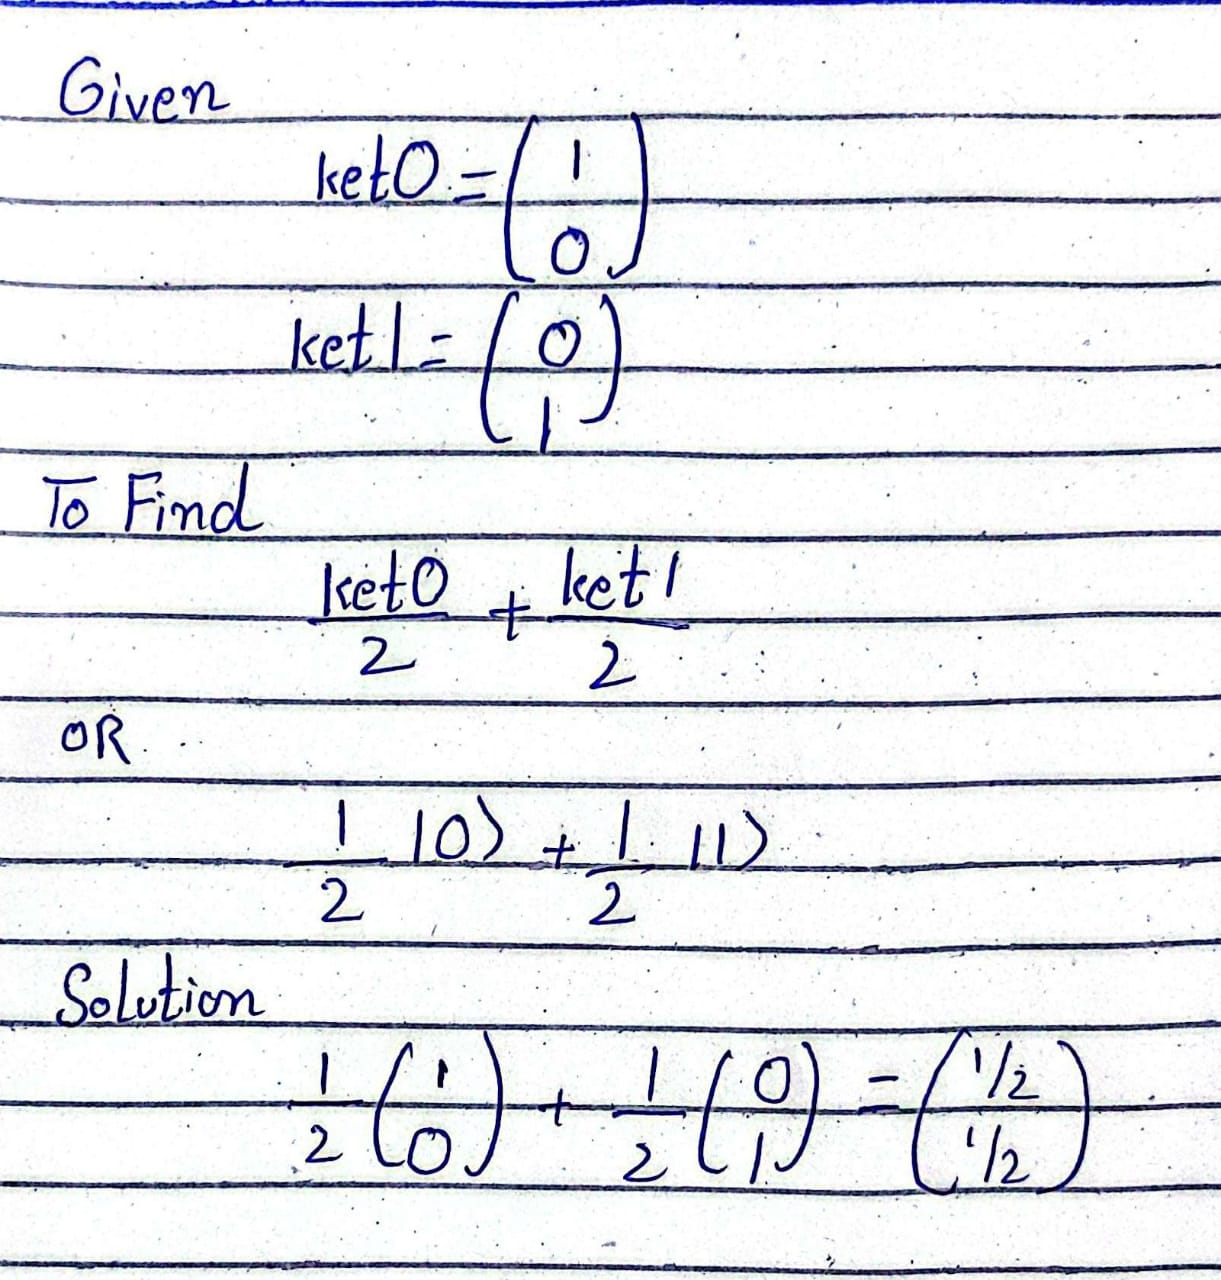 Given
ket0 = (1
0)
ket1 = (0
1)
To Find
ket0/2 + ket1/2
OR
1/2 |0⟩ + 1/2 |1⟩
Solution
1/2 (1 0) + 1/2 (0 1) = (1/2 1/2)